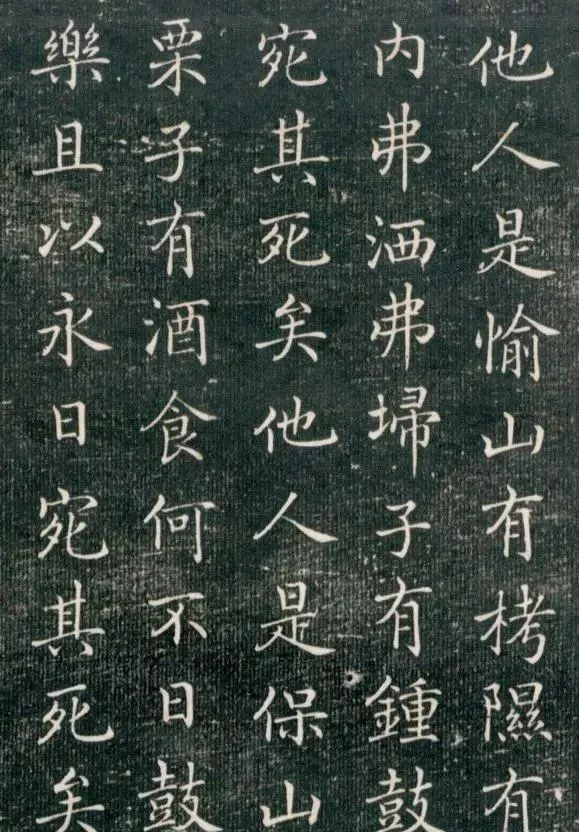 他人是愉山有栲隰有
内弗洒弗埽子有鍾鼓
宛其死矣他人是保山
栗子有酒食何不日鼓
樂且以永日宛其死矣